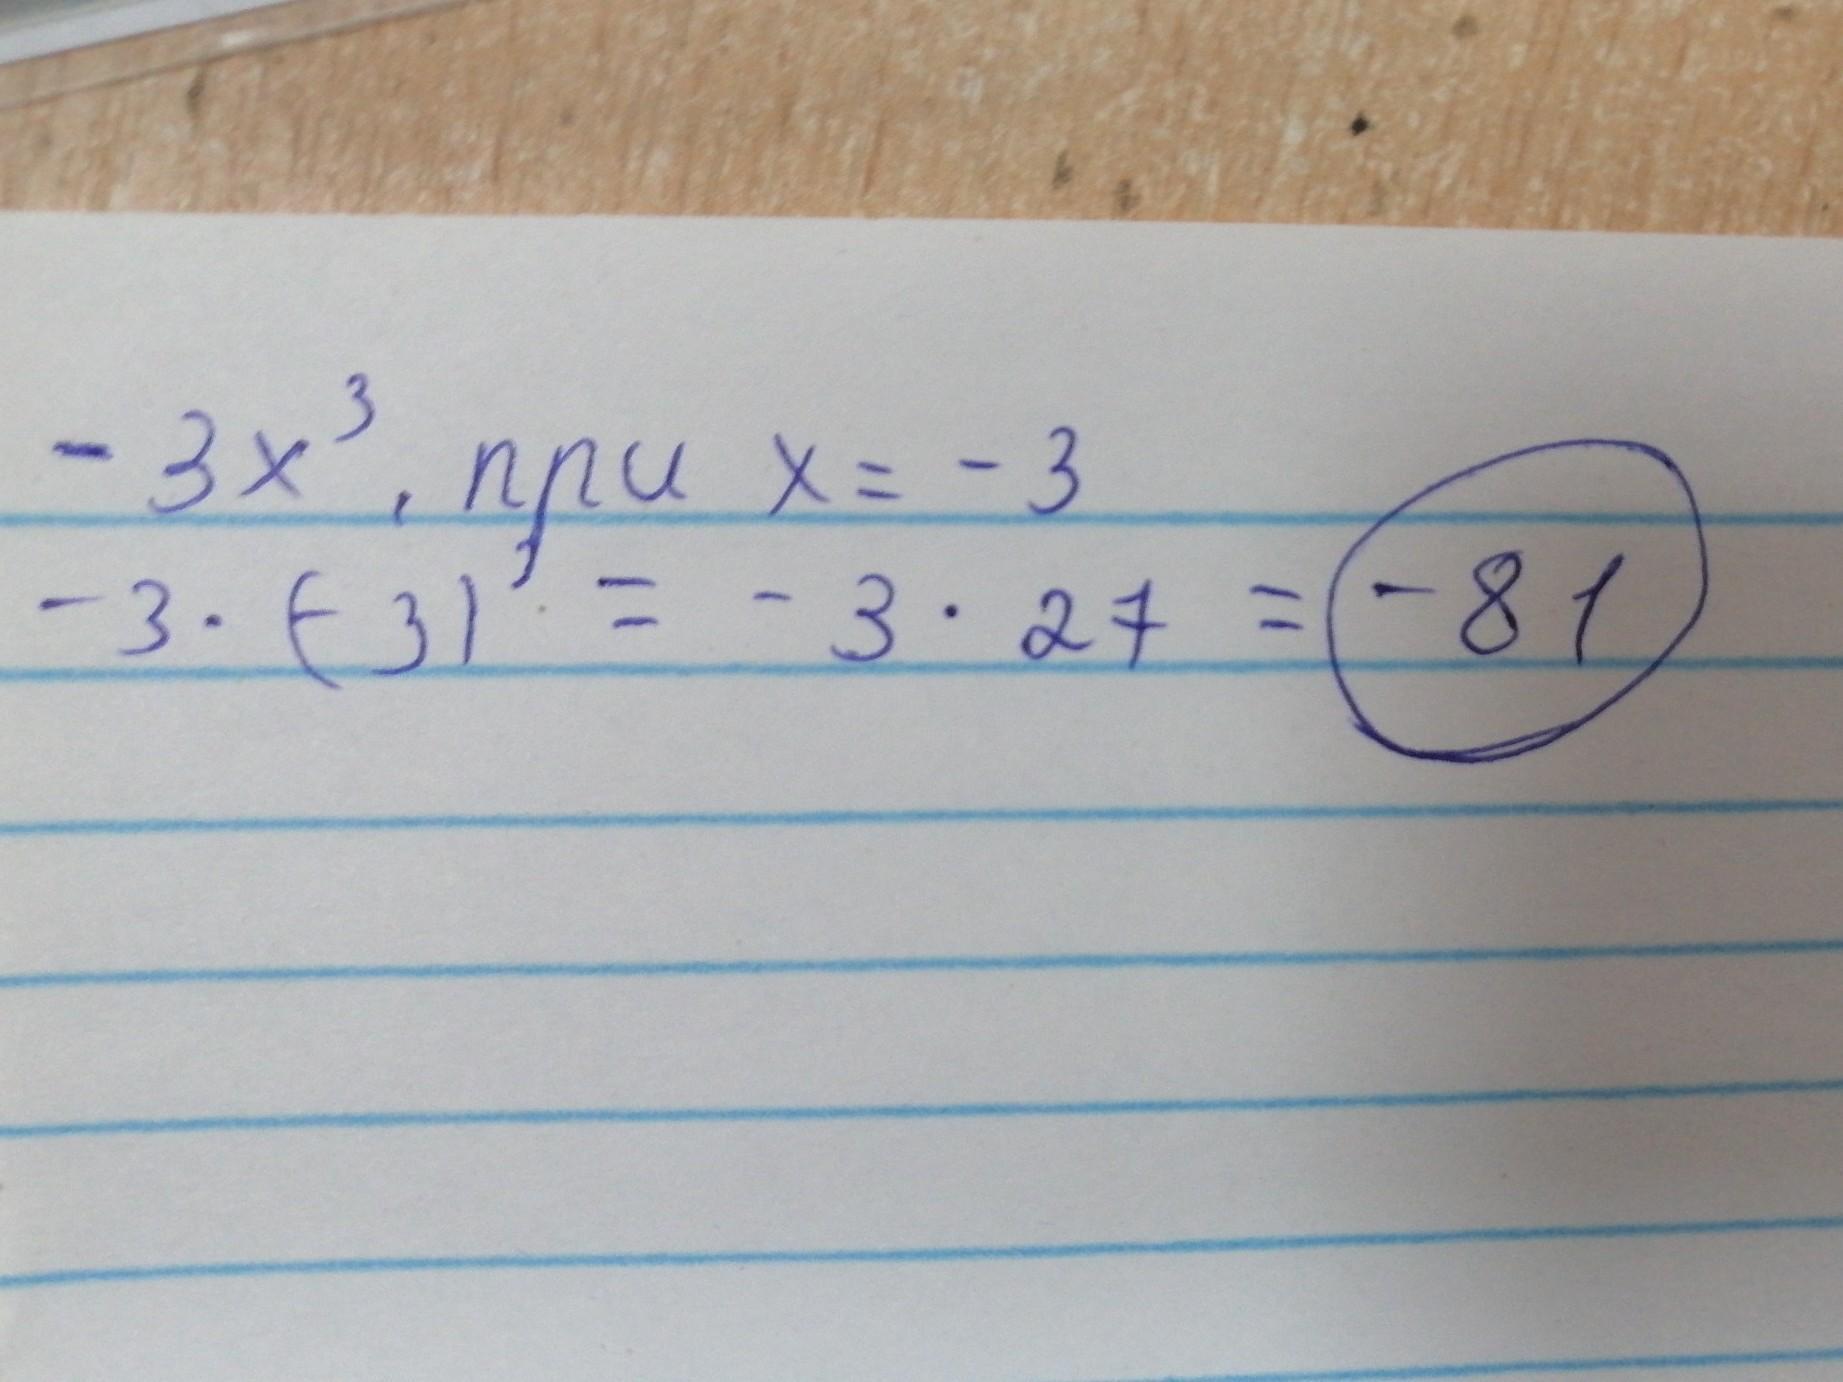 -3x³, при x = -3
-3 · (-3)³ = -3 · 27 = -81